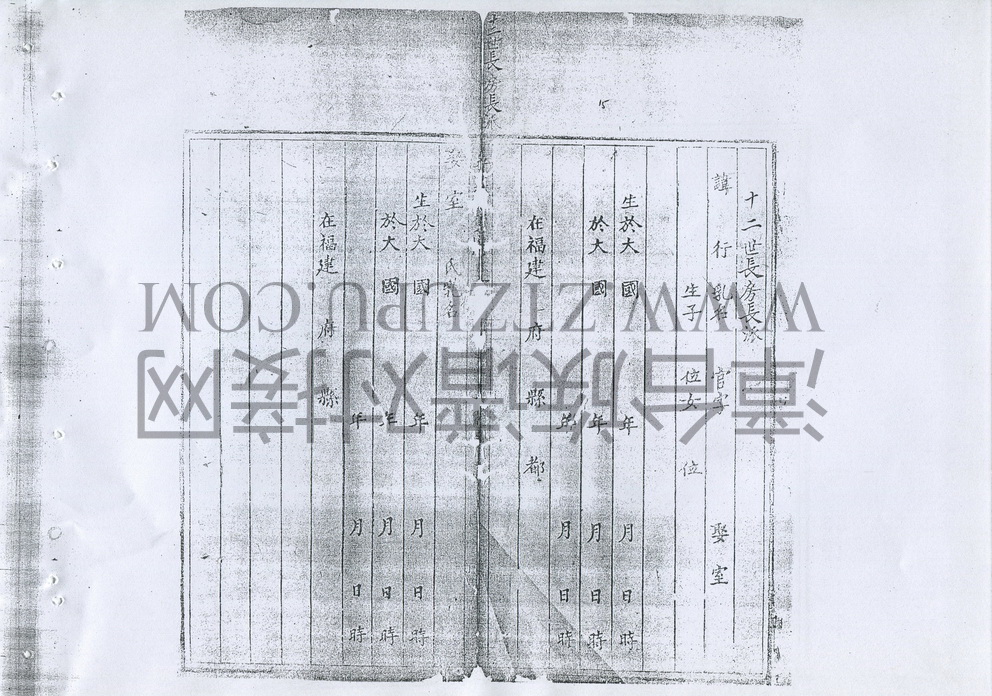 十二世長房長派
十二世長房長派
諱 行 乳名 官字 娶室
生子 位女 位
生於大 國 年 月 日 時
於大 國 年 月 日 時
年 月 日 時
在福建 府 縣 都
娶室 氏乳名
生於大 國 年 月 日 時
於大 國 年 月 日 時
年 月 日 時
在福建 府 縣
WWW.ZTZUPU.COM
漳台族谱对接网